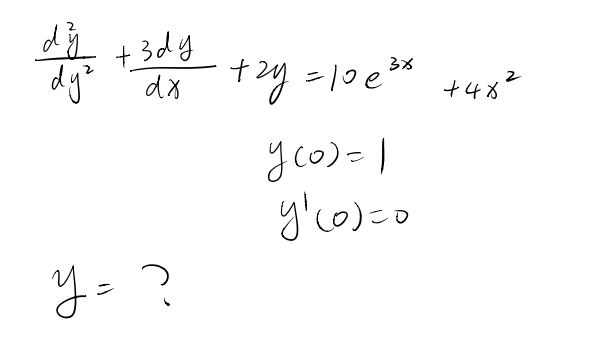 d²y/dy² + 3dy/dx + 2y = 10e^{3x} + 4x²
y(0) = 1
y'(0) = 0
y = ?